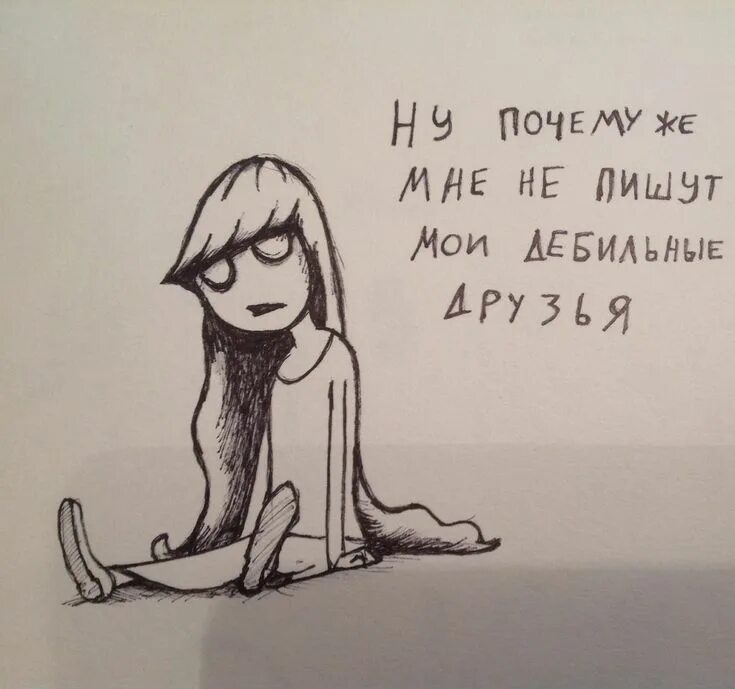 НУ ПОЧЕМУ ЖЕ
МНЕ НЕ ПИШУТ
МОИ ДЕБИЛЬНЫЕ
ДРУЗЬЯ